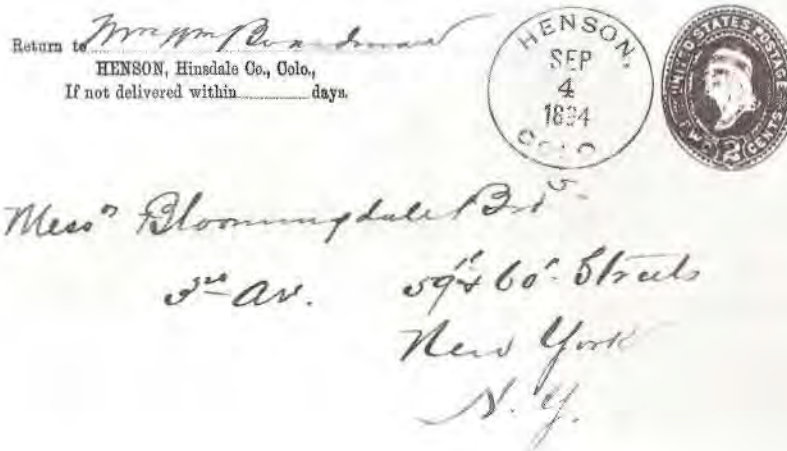 Return to Mrs Wm Boardman
HENSON, Hinsdale Co., Colo.,
If not delivered within days.
HENSON,
SEP
4
1894
COLO
UNITED STATES POSTAGE
TWO 2 CENTS
Messrs Bloomingdale Bros
3rd Av. 59th & 60th Streets
New York
N.Y.